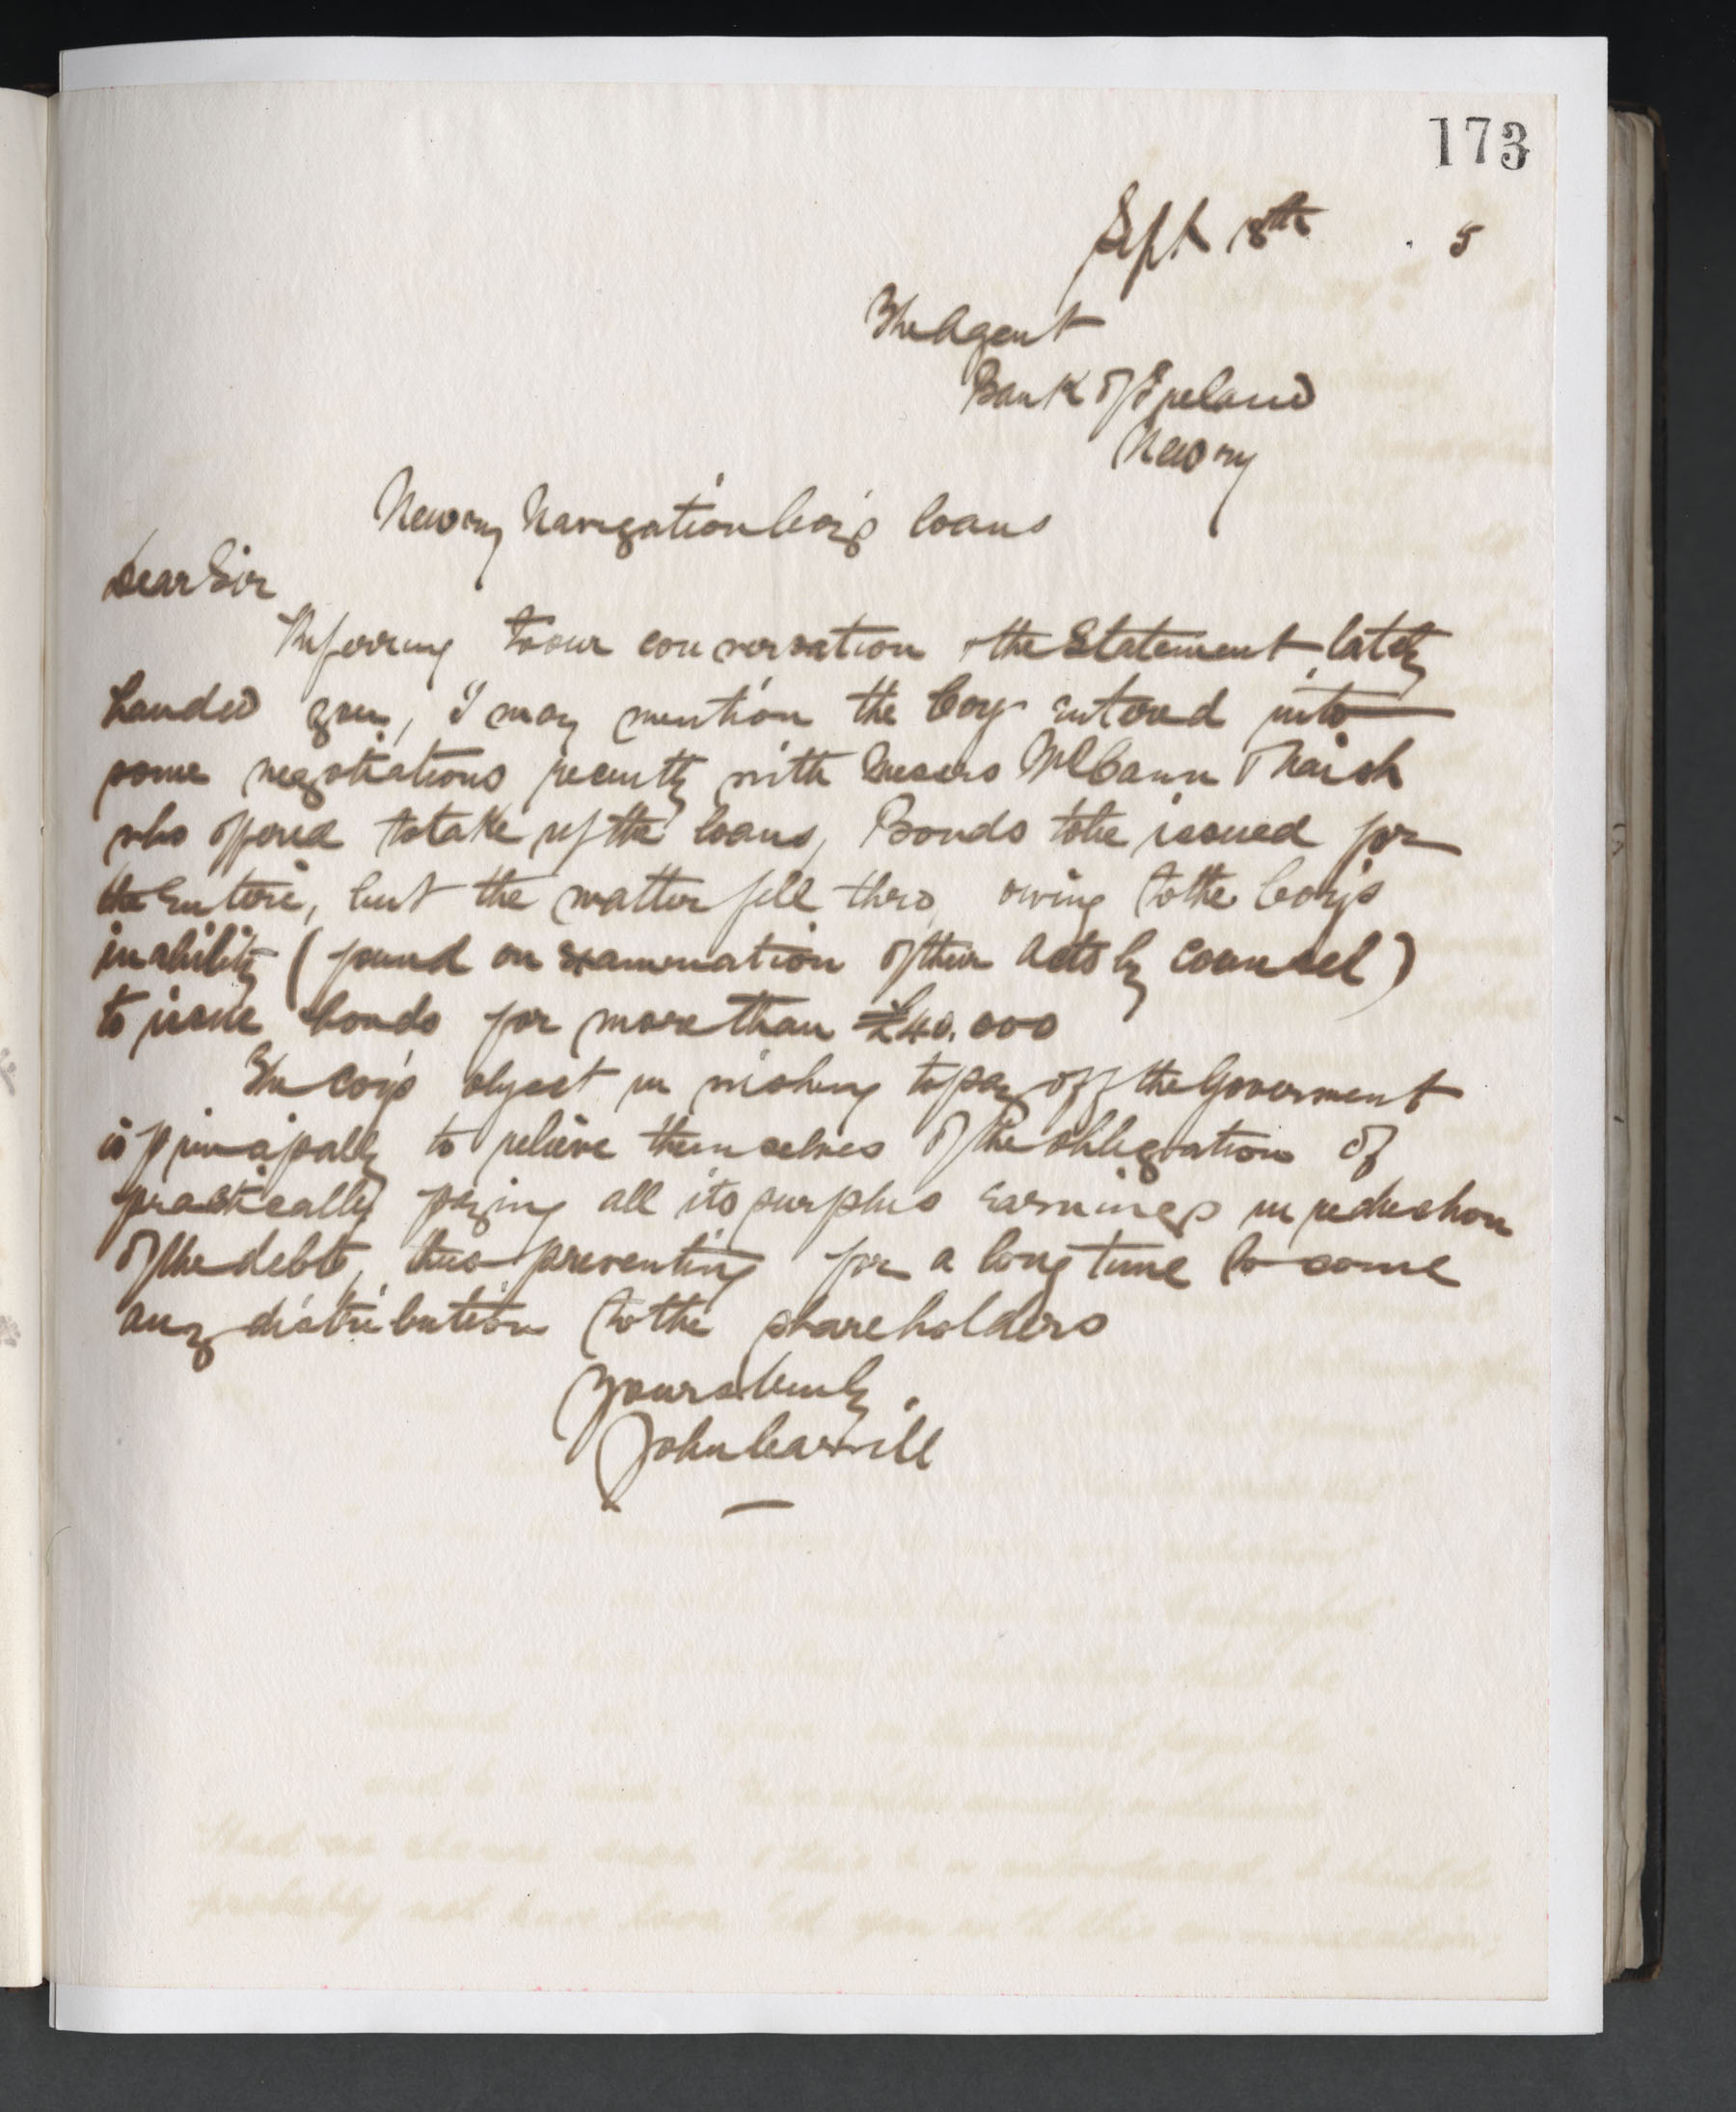 173
Sept 18th 5
The Agent
Bank of Ireland
Newry
Newry Navigation Coy's loans
Dear Sir
Referring to our conversation & the Statement lately
handed you, I may mention the Coy entered into
some negotiations recently with Messrs McCann & Naish
who offered to take up the loans, Bonds to be issued for
the entire, but the matter fell thro, owing to the Coy's
inability (found on examination of their Acts by counsel)
to issue bonds for more than £40.000
The Coy's object in wishing to pay off the Goverment
is principally to relieve themselves of the obligation of
practically paying all its surplus earnings in reduction
of the debt, thus preventing for a long time to come
any distribution to the shareholders
Yours truly
John Carvill